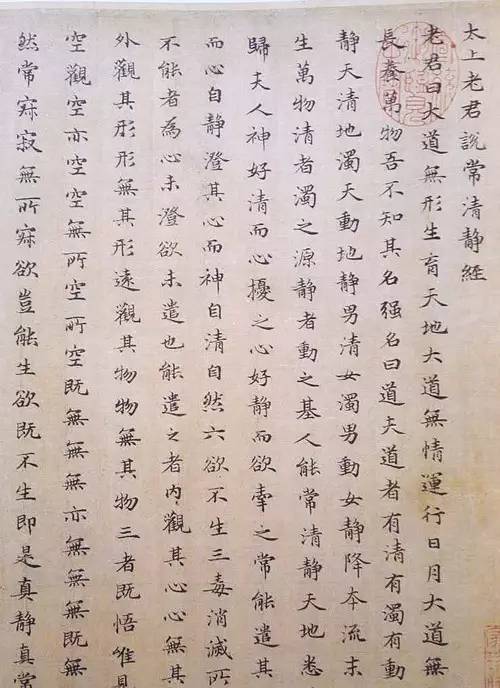 太上老君說常清靜經
老君曰大道無形生育天地大道無情運行日月大道無
長養萬物吾不知其名强名曰道夫道者有清有濁有動
靜天清地濁天動地靜男清女濁男動女靜降夲流末
生萬物清者濁之源靜者動之基人能常清靜天地悉
歸夫人神好清而心擾之心好靜而欲牽之常能遣其
而心自靜澄其心而神自清自然六欲不生三毒消滅所
不能者為心未澄欲未遣也能遣之者內觀其心心無其
外觀其形形無其形遠觀其物物無其物三者既悟唯見
空觀空亦空空無所空所空既無無無亦無無無既無
然常寂寂無所寂欲豈能生欲既不生即是真靜真常